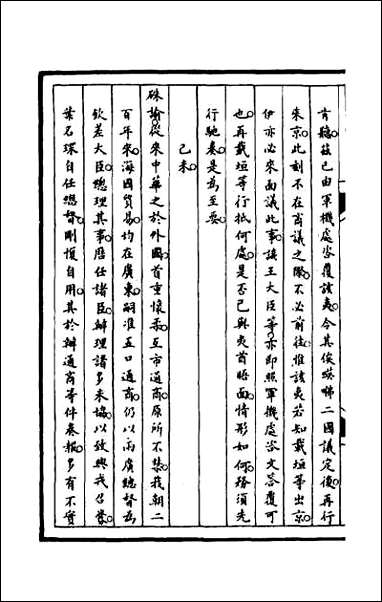 肯聽茲已由軍機處咨覆該夷令其俟㗖㘔二國議定後再行
來京此刻不在商議之際不必前往惟該夷若知載垣等出京
伊亦必來面議此事該王大臣等亦即照軍機處咨文答覆可
也再載垣等行抵何處是否已與夷酋晤面情形如何務須先
行馳奏是為至要
己未
硃諭從來中華之於外國首重懷柔互市通商原所不禁我朝二
百年來海國貿易均在廣東嗣准五口通商仍以兩廣總督為
欽差大臣總理其事歷任諸臣辦理諸多未協以致興戎召釁
葉名琛自任總督剛愎自用其於辦通商等件奏報多有不實